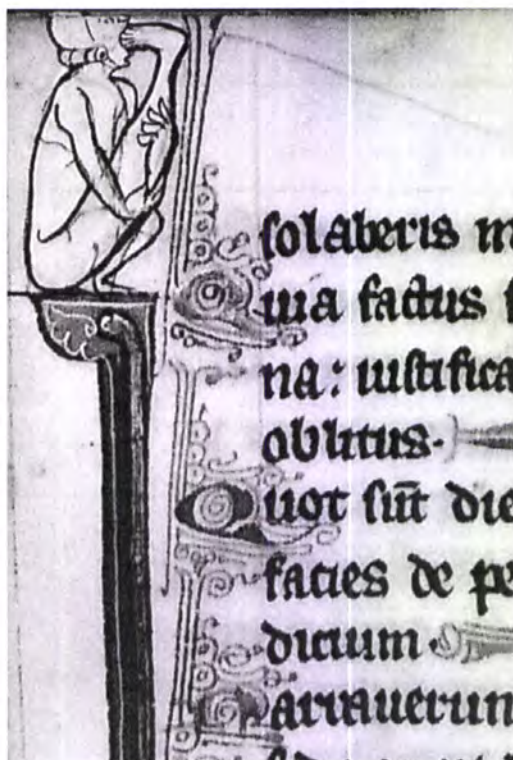 solaberis m
Quia factus s
na: iustifica
oblitus.
Quot sūt die
facies de pe
dicium.
Narrauerun